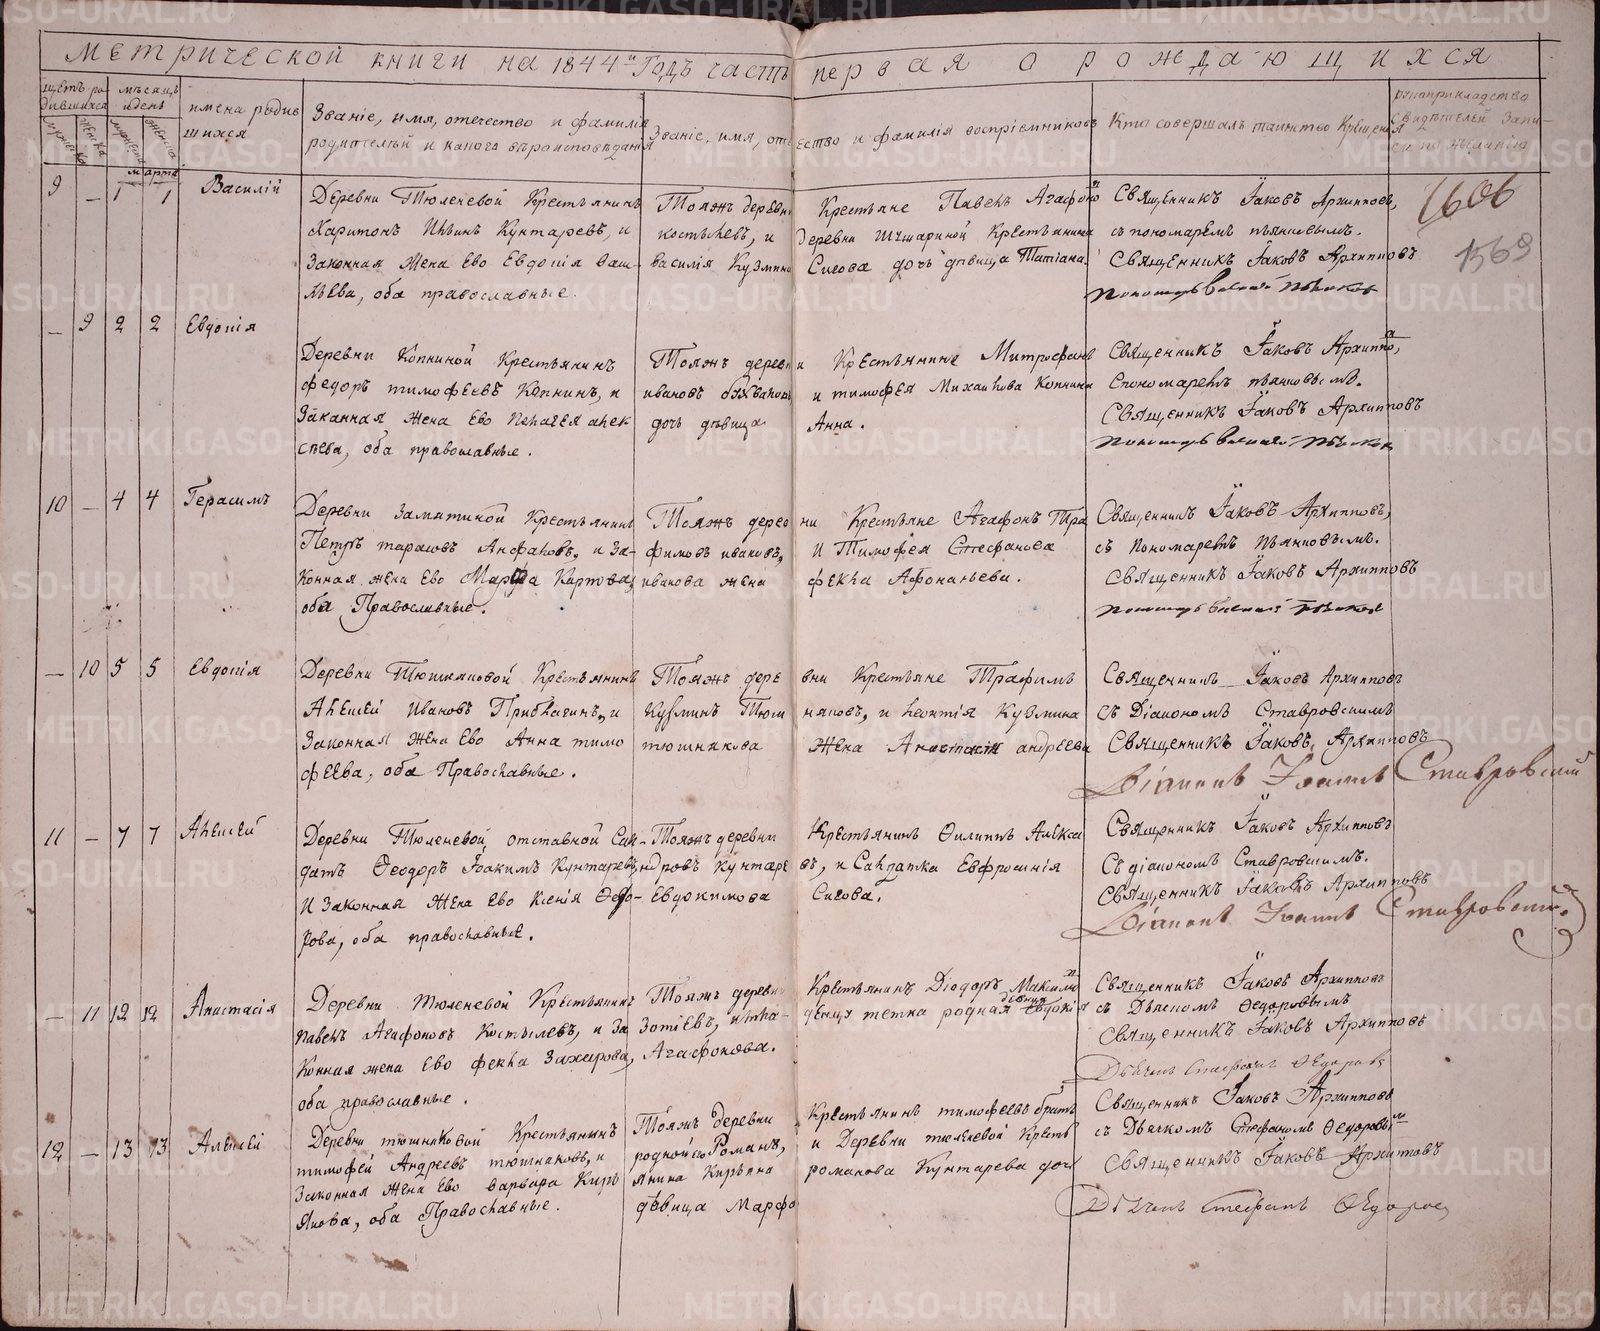 метрической книги на 1844й Годъ часть первая о рождающихся
щетъ родившихся
мѣсяцъ и день
имена родившихся
Званіе, имя, отечество и фамилія
родителей и какого вѣроисповѣданія
Званіе, имя, отечество и фамилія воспріемниковъ
Кто совершалъ таинство Крещенія
рукоприкладство
свидѣтелей записи по желанію
марта
9 — 1 1 Василій
Деревни Тюленевой Крестьянинъ
Харитонъ Ильинъ Кунтаревъ, и
Законная Жена Ево Евдокія Васи-
льева, оба православные.
Тояжъ деревни Крестьяне Павелъ Агафоно
костылевъ, и деревни Крестьянина
Василія Кузмина Сысова дочь дѣвица Татіана.
Священникъ Іаковъ Архиповъ,
съ пономаремъ пьянковымъ.
Священникъ Іаковъ Архипповъ
1606
1569
— 9 2 2 Евдокія
Деревни Копниной Крестьянинъ
федоръ тимофеевъ Копнинъ, и
Законная Жена Ево Пелагея алек
сѣева, оба православные.
Тояжъ деревни Крестьянине Митрофанъ
ивановъ и тимофея Михаилова Копнина
дочь дѣвица Анна.
Священникъ Іаковъ Архиппо,
спономаремъ пьянковымъ.
Священникъ Іаковъ Архипповъ
10 — 4 4 Герасимъ
Деревни Замятиной Крестьянинъ
Петръ тарасовъ Анфаловъ, и За-
конная жена Ево Марфа Карпова,
оба Православные.
Тояжъ деревни Крестьяне Агафонъ Тра
фимовъ ивановъ, и Тимофея Стефанова
иванова жена фекла Афонасьева.
Священникъ Іаковъ Архипповъ,
съ Пономаремъ Пьянковымъ.
Священникъ Іаковъ Архипповъ
— 10 5 5 Евдокія
Деревни Тюшняковой Крестьянинъ
Алексей Ивановъ Прибылгинъ, и
Законная Жена Ево Анна тимо
феева, оба Православные.
Тояжъ деревни Крестьяне Трафимъ
Кузминъ Тюшняковъ, и леонтія Кузмина
тюшнякова Жена Анастасія андреева
Священникъ Іаковъ Архипповъ
съ Діакономъ Ставровскимъ
Священникъ Іаковъ Архипповъ
Діаконъ Іоаннъ Ставровскій
11 — 7 7 Алексей
Деревни Тюленевой отставной Сал-
датъ Феодоръ Іоакимъ Кунтаревъ,
И Законная Жена Ево Ксенія Федо-
рова, оба православные.
Тояжъ деревни Крестьянинъ Филиппъ Алекса
ндровъ Кунтаревъ, и Салдатка Евфросинія
Евдокимова Сысова.
Священникъ Іаковъ Архипповъ
Съ діакономъ Ставровскимъ.
Священникъ Іаковъ Архипповъ
Діаконъ Іоаннъ Ставровскій.
— 11 12 12 Анастасія
Деревни Тюленевой Крестьянинъ
павелъ Агафоновъ Костылевъ, и За
Конная жена Ево фекла Захарова,
оба православные.
Тояжъ деревни Крестьянинъ Діодоръ Максимо
Зотіевъ, тетка родная Евдокія
Агафонова.
Священникъ Іаковъ Архипповъ
съ Дьячкомъ Федоровымъ
Священникъ Іаковъ Архипповъ
Дьячекъ Стефанъ Федоровъ
12 — 13 13 Алексей
Деревни тюшняковой Крестьянинъ
тимофей Андреевъ тюшняковъ, и
Законная Жена Ево варвара Кирь
якова, оба Православные.
Тояжъ деревни Крестьянинъ тимофеевъ братъ
родной Романъ, и Деревни тюленевой Кресть
янина Романова Кунтарева дочь
дѣвица Марфа
Священникъ Іаковъ Архипповъ
съ Дьячкомъ Стефаномъ Федоровымъ
Священникъ Іаковъ Архиповъ
Дьячекъ Стефанъ Федоровъ
METRIKI.GASO-URAL.RU